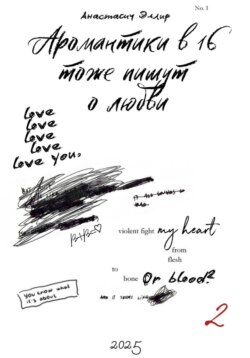 No. 1
Анастасич Эллир
Аромантики в 16
тоже пишут
о любви
love
love
love
love
love you,
violent fight my heart
from
flesh
to
bone Or blood?
you know what
it's about
2
2025